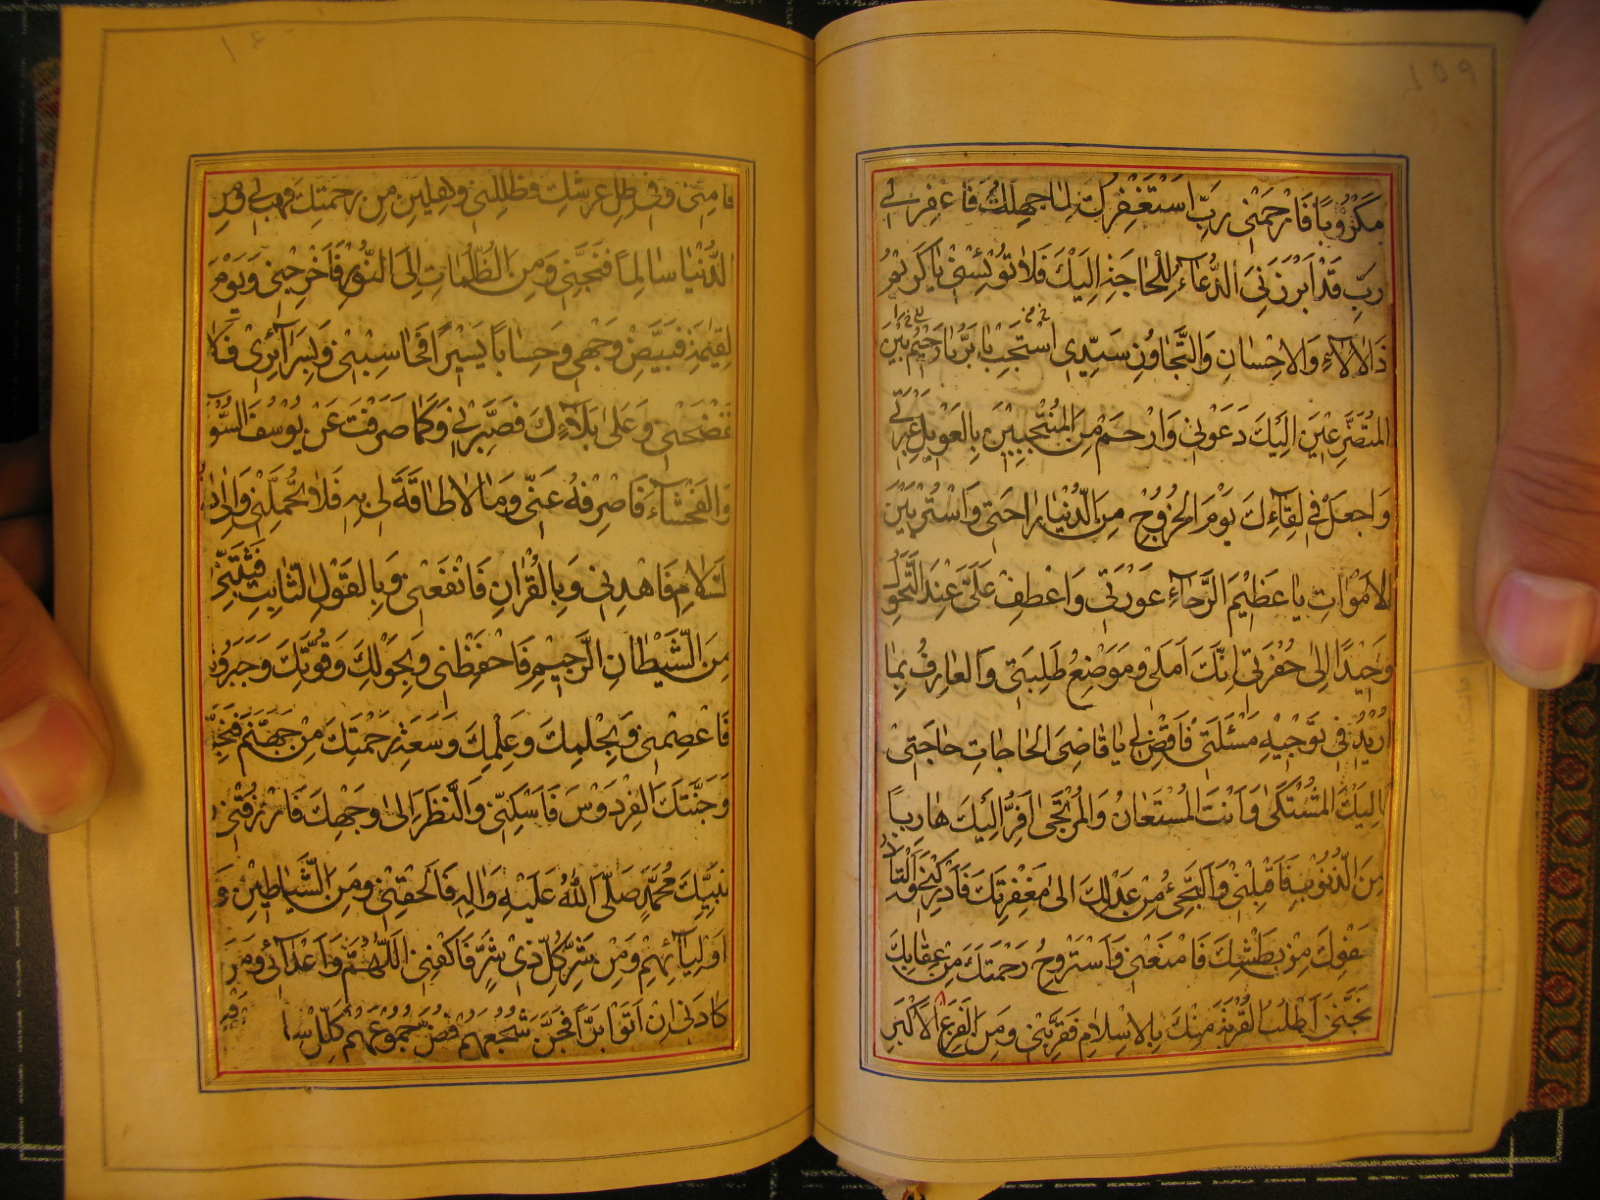 ١٥٩
مَكْرُوبًا فَارْحَمْنِي رَبِّ اَسْتَغْفِرُكَ لِمَا جَهِلْتُ فَاغْفِرْ لِي
رَبِّ قَدْ اَبْرَزَنِيَ الدُّعَاءُ لِلْحَاجَةِ اِلَيْكَ فَلَا تُؤْيِسْنِي يَا كَرِيمُ
ذَا الْآلَاءِ وَالْاِحْسَانِ وَالتَّجَاوُزِ سَيِّدِي يَا بَرُّ يَا رَحِيمُ اسْتَجِبْ بَيْنَ
الْمُتَضَرِّعِينَ اِلَيْكَ دَعْوَتِي وَارْحَمْ مِنَ الْمُنْتَحِبِينَ بِالْعَوِيلِ عَبْرَتِي
وَاجْعَلْ فِي لِقَاءِكَ يَوْمَ الْخُرُوجِ مِنَ الدُّنْيَا رَاحَتِي وَاسْتُرْ بَيْنَ
الْاَمْوَاتِ يَا عَظِيمَ الرَّجَاءِ عَوْرَتِي وَاعْطِفْ عَلَيَّ عِنْدَ التَّحَوُّلِ
وَحِيدًا اِلَى حُفْرَتِي اِنَّكَ اَمَلِي وَمَوْضِعُ طَلِبَتِي وَالْعَارِفُ بِمَا
اُرِيدُ فِي تَوْجِيهِ مَسْئَلَتِي فَاقْضِ لِي يَا قَاضِيَ الْحَاجَاتِ حَاجَتِي
فَاِلَيْكَ الْمُشْتَكَى وَاَنْتَ الْمُسْتَعَانُ وَالْمُرْتَجَى اَفِرُّ اِلَيْكَ هَارِبًا
مِنَ الذُّنُوبِ فَاقْبَلْنِي وَاَلْتَجِئُ مِنْ عَدْلِكَ اِلَى مَغْفِرَتِكَ فَاَدْرِكْنِي وَاَلْتَاذُ
بِعَفْوِكَ مِنْ بَطْشِكَ فَامْنَعْنِي وَاَسْتَرْوِحُ رَحْمَتَكَ مِنْ عِقَابِكَ
فَنَجِّنِي اَطْلُبُ الْقُرْبَةَ مِنْكَ بِالْاِسْلَامِ فَقَرِّبْنِي وَمِنَ الْفَزَعِ الْاَكْبَرِ
١٤٠
فَاٰمِنِّي وَفِي ظِلِّ عَرْشِكَ فَظَلِّلْنِي وَكِفْلَيْنِ مِنْ رَحْمَتِكَ فَهَبْ لِي وَمِنَ
الدُّنْيَا سَالِمًا فَنَجِّنِي وَمِنَ الظُّلُمَاتِ اِلَى النُّورِ فَاَخْرِجْنِي وَيَوْمَ
الْقِيٰمَةِ فَبَيِّضْ وَجْهِي وَحِسَابًا يَسِيرًا فَحَاسِبْنِي وَبِسَرَائِرِي فَلَا
تَفْضَحْنِي وَعَلَى بَلَاءِكَ فَصَبِّرْنِي وَكَمَا صَرَفْتَ عَنْ يُوسُفَ السُّوءَ
وَالْفَحْشَاءَ فَاصْرِفْهُ عَنِّي وَمَا لَا طَاقَةَ لِي بِهِ فَلَا تُحَمِّلْنِي وَاِلَى دَارِ
السَّلَامِ فَاهْدِنِي وَبِالْقُرْاٰنِ فَانْفَعْنِي وَبِالْقَوْلِ الثَّابِتِ فَثَبِّتْنِي
مِنَ الشَّيْطَانِ الرَّجِيمِ فَاحْفَظْنِي وَبِحَوْلِكَ وَقُوَّتِكَ وَجَبَرُوتِكَ
فَاعْصِمْنِي وَبِحِلْمِكَ وَعِلْمِكَ وَسَعَةِ رَحْمَتِكَ مِنْ جَهَنَّمَ فَنَجِّنِي
وَجَنَّتَكَ الْفِرْدَوْسَ فَاَسْكِنِّي وَالنَّظَرَ اِلَى وَجْهِكَ فَارْزُقْنِي
بِنَبِيِّكَ مُحَمَّدٍ صَلَّى اللهُ عَلَيْهِ وَاٰلِهِ فَاَلْحِقْنِي وَمِنَ الشَّيَاطِينِ وَ
اَوْلِيَائِهِمْ وَمِنْ شَرِّ كُلِّ ذِي شَرٍّ فَاكْفِنِي اَللّٰهُمَّ وَاَعْدَائِي وَمَنْ
كَادَنِي اِنْ اَتَوْا بَرًّا فَجَبِّنْ شُجْعَهُمْ فُضَّ جُمُوعَهُمْ كَلِّلْ سِلَا